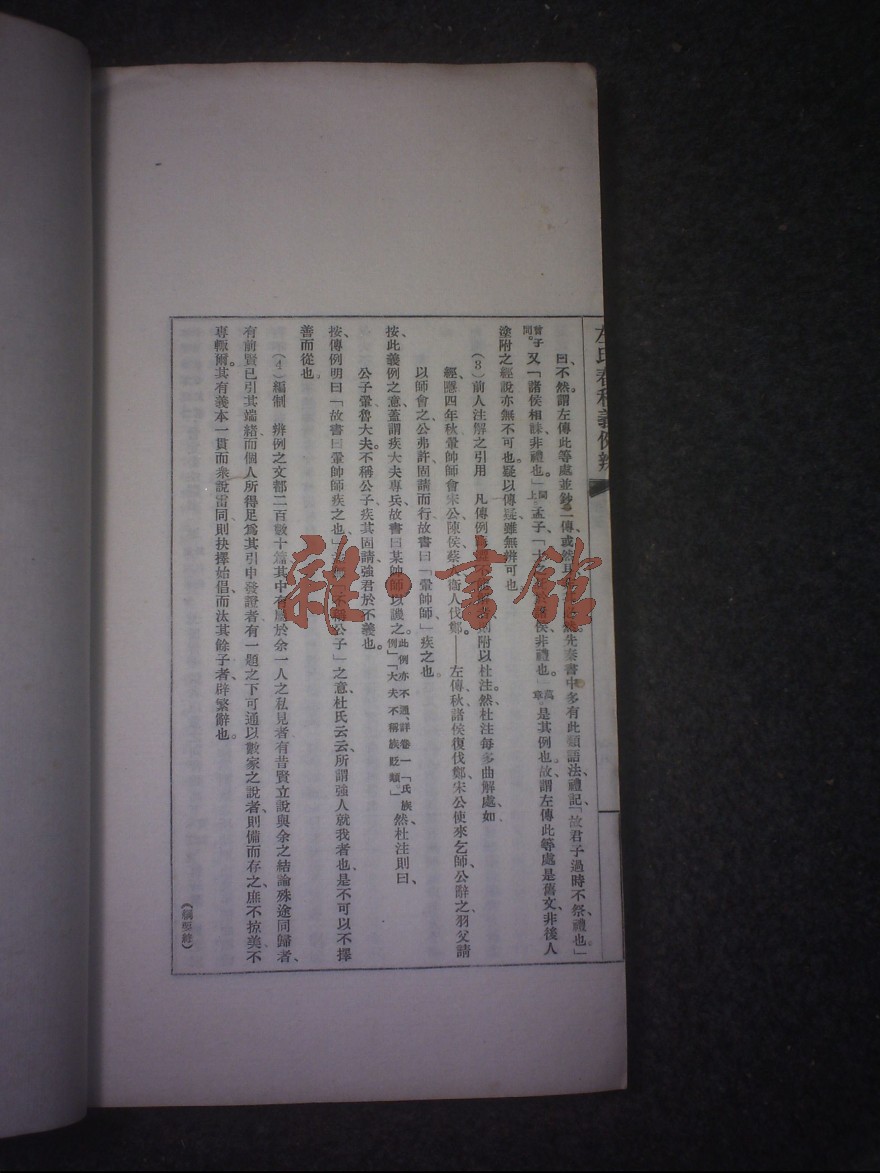 左氏春秋義例辨
曰、不然謂左傳此等處並鈔 一傳或然 先秦書中多有此類語法、禮記「故君子過時不祭、禮也」、
曾子問。又「諸侯相誄、非禮也」、同上孟子「士之 侯、非禮也。」萬章。是其例也。故謂左傳此等處是舊文、非後人
塗附之經說、亦無不可也。疑以傳疑、雖無辨可也。
(3) 前人注解之引用 凡傳例 不 則附以杜注。然杜注每多曲解處、如
經隱四年秋、翬帥師會宋公、陳侯、蔡人、衞人伐鄭——左傳秋、諸侯復伐鄭、宋公使來乞師、公辭之、羽父請
以師會之、公弗許、固請而行、故書曰「翬帥師」、疾之也。
按此義例之意、蓋謂疾大夫專兵、故書曰某帥師以譏之。此例亦不通、詳卷一「氏族例」「大夫不稱族貶 」然杜注則曰、
公子翬、魯大夫。不稱公子、疾其固請強君於不義也。
按傳例明曰「故書曰翬帥師、疾之也」、 不稱公子」之意、杜氏云云、所謂強人就我者也。是不可以不擇
善而從也。
(4) 編制 辨例之文都二百數十篇、其中有屬於余一人之私見者、有昔賢立說與余之結論殊途同歸者、
有前賢已引其端緒而個人所得足爲其引申發證者、有一題之下可通以數家之說者、則備而存之、庶不掠美、不
專輒爾。其有義本一貫而衆說雷同、則抉擇始倡、而汰其餘子者、辟繁辭也。
雜·書館